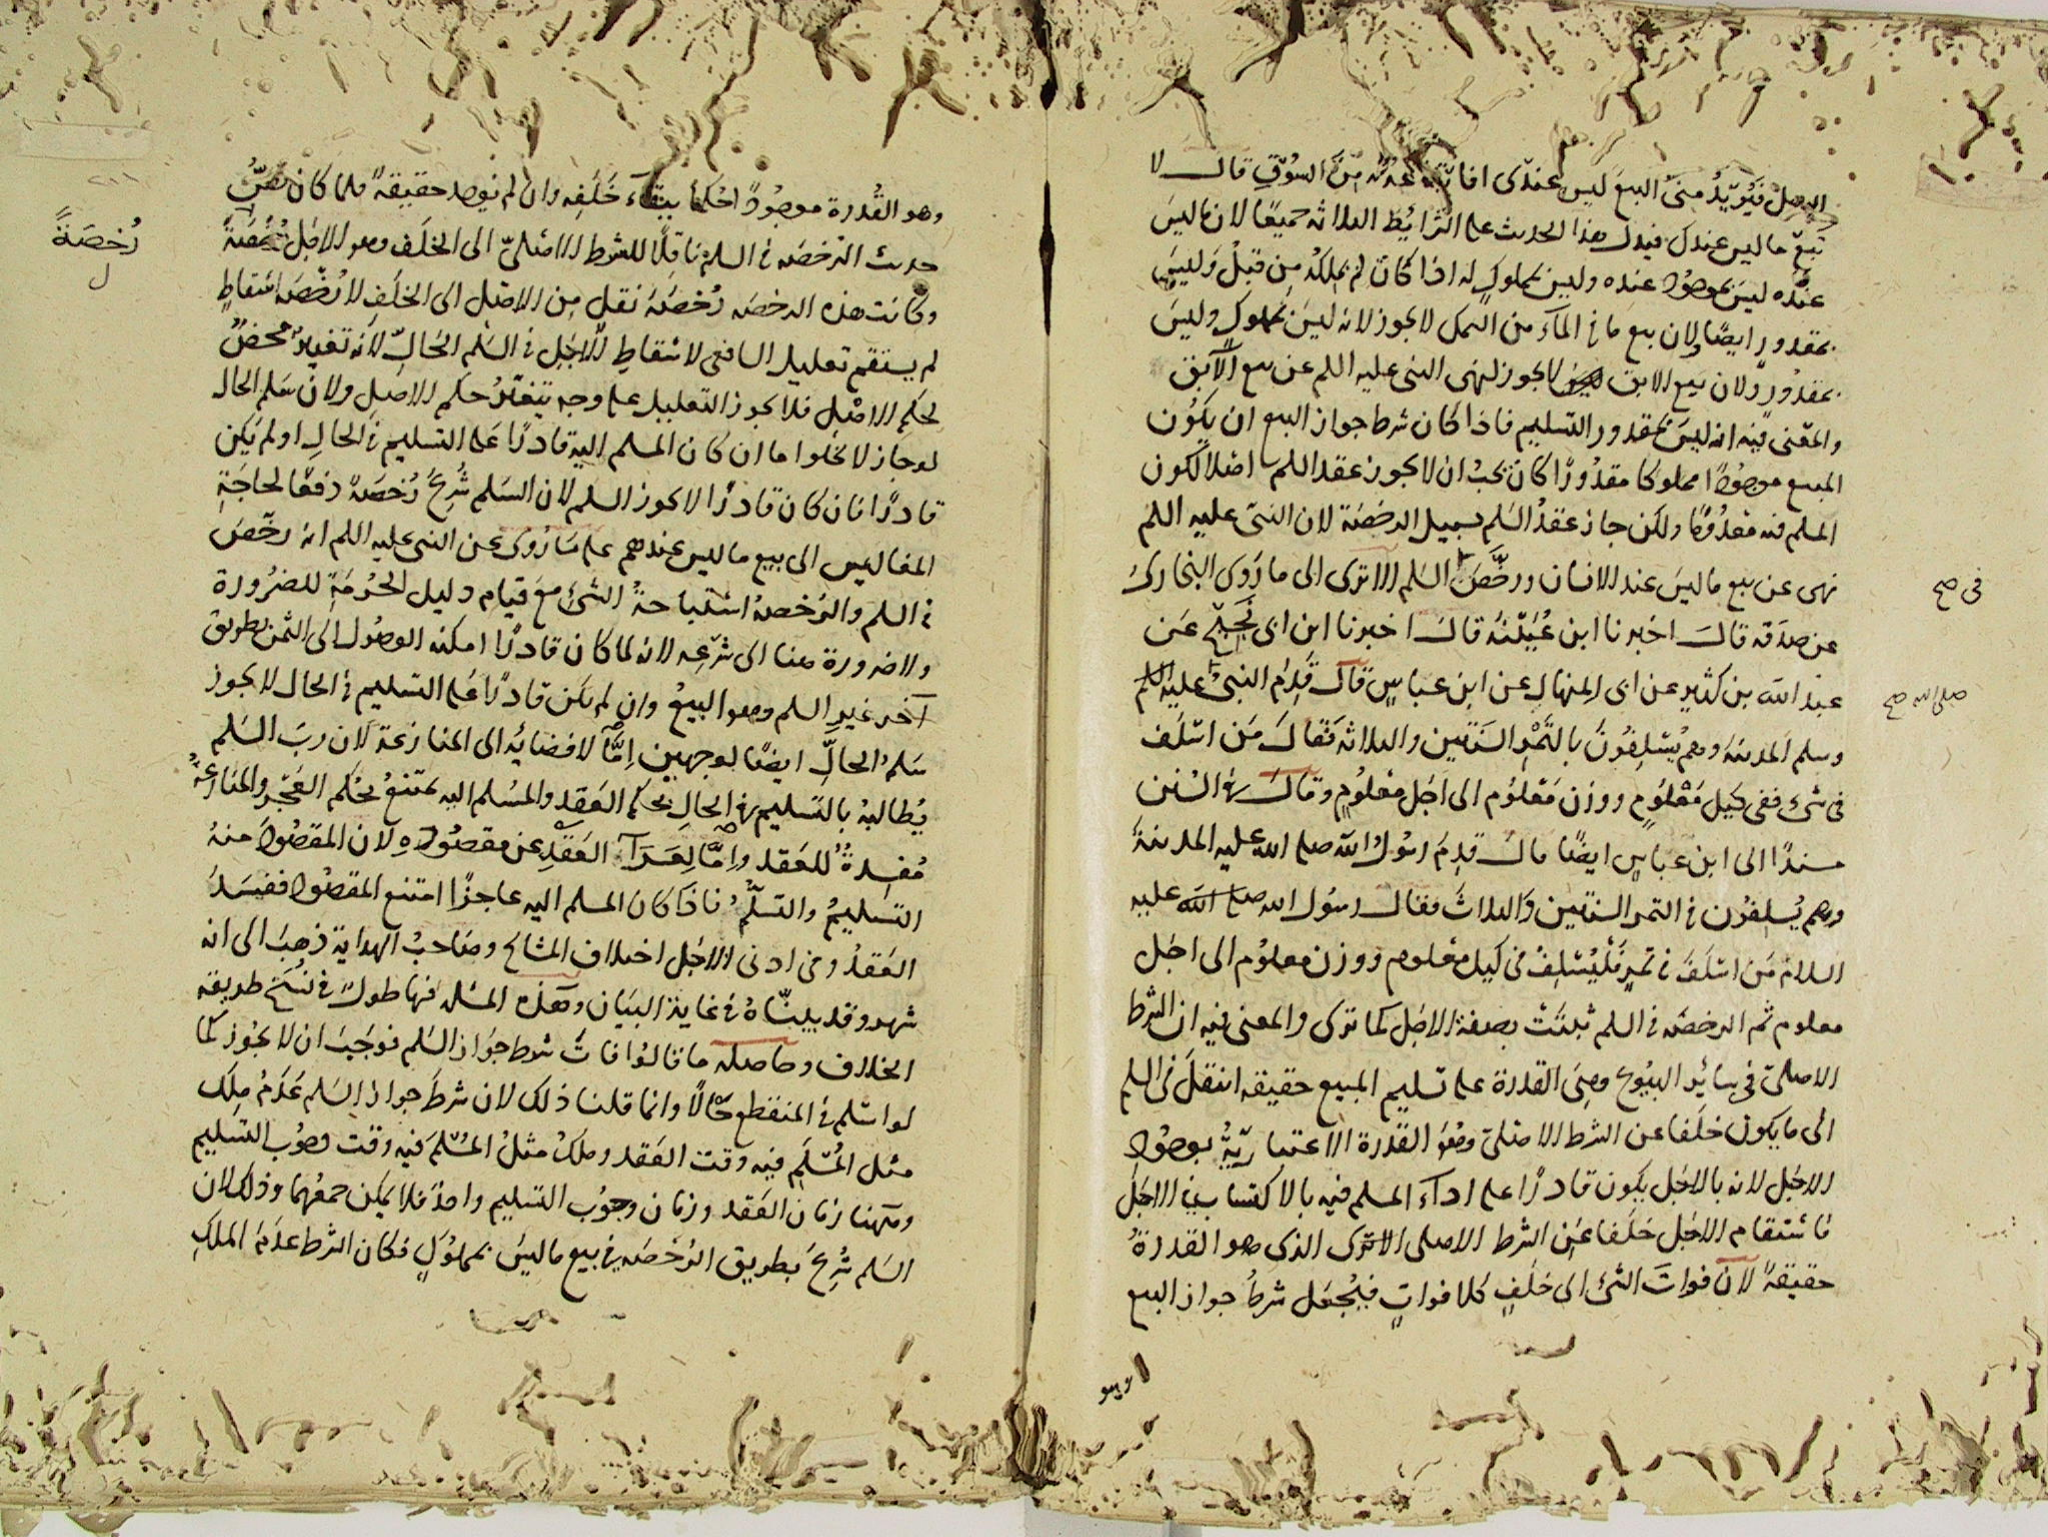 الرجل فيريد منى البيع ليس عندى افابتاعه له من السوق قال لا
تبع ما ليس عندك فيدل هذا الحديث على الشرايط الثلاثة جميعا لان ما ليس
عنده ليس بموجود عنده وليس بمملوك له اذا كان لم يملكه من قبل وليس
بمقدور ايضا ولان بيع ما فى الماء من السمك لا يجوز لانه ليس بمملوك وليس
بمقدور ولان بيع الابق لا يجوز لنهى النبى عليه السلم عن بيع الآبق
والمعنى فيه انه ليس بمقدور التسليم فاذا كان شرط جواز البيع ان يكون
المبيع موجودا مملوكا مقدورا كان يجب ان لا يجوز عقد السلم اصلا لكون
المسلم فيه معدوما ولكن جاز عقد السلم بسبيل الرخصة لان النبى عليه السلم
نهى عن بيع ما ليس عند الانسان ورخص فى السلم الا ترى الى ما روى البخارى
فى صح
عن صدقة قال اخبرنا ابن عيينة قال اخبرنا ابن ابى نجيح عن
عبد الله بن كثير عن ابى المنهال عن ابن عباس قال قدم النبى عليه السلم
صلى الله صح
وسلم المدينة وهم يسلفون بالتمر السنتين والثلاثة فقال من اسلف
فى شئ ففى كيل معلوم ووزن معلوم الى اجل معلوم وقال فى السنن
مسندا الى ابن عباس ايضا قال قدم رسول الله صلى الله عليه المدينة
وهم يسلفون فى التمر السنتين والثلاث فقال رسول الله صلى الله عليه
السلام من اسلف فى تمر فليسلف فى كيل معلوم ووزن معلوم الى اجل
معلوم ثم الرخصة فى السلم ثبتت بصفة الاجل كما ترى والمعنى فيه ان الشرط
الاصلى فى سائر البيوع وهى القدرة على تسليم المبيع حقيقة انتقل فى السلم
الى ما يكون خلفا عن الشرط الاصلى وهو القدرة الاعتبارية بوجود
الاجل لانه بالاجل يكون قادرا على اداء المسلم فيه بالاكتساب فى الاجل
فاستقام الاجل خلفا عن الشرط الاصلى الا ترى الذى هو القدرة
حقيقة لان فوات الشئ الى خلف كلا فوات فيجعل شرط جواز البيع
وهو
وهو القدرة موجودا حكما ببقاء خلفه وان لم يوجد حقيقة فلما كان نص
حديث الرخصة فى السلم ناقلا للشرط الاصلى الى الخلف وهو الاجل
رخصة
ل
وكانت هذه الرخصة رخصة نقل من الاصل الى الخلف لا رخصة اسقاط
لم يستقم تعليل الشافعى لاسقاط الاجل فى السلم الحال لانه تغيير محض
لحكم الاصل فلا يجوز التعليل على وجه يتغير حكم الاصل ولان سلم الحال
لو جاز لا يخلوا ما ان كان المسلم اليه قادرا على التسليم فى الحال او لم يكن
قادرا فان كان قادرا لا يجوز السلم لان السلم شرع رخصة دفعا لحاجة
المفاليس الى بيع ما ليس عندهم على ما روى عن النبى عليه السلم انه رخص
فى السلم والرخصة استباحة الشئ مع قيام دليل الحرمة للضرورة
ولا ضرورة هنا الى شرعه لانه لما كان قادرا امكنه الوصول الى الثمن بطريق
آخر غير السلم وهو البيع وان لم يكن قادرا على التسليم فى الحال لا يجوز
سلم الحال ايضا لوجهين اما لافضائه الى المنازعة لان رب السلم
يطالبه بالتسليم فى الحال بحكم العقد والمسلم اليه يمتنع بحكم العجز والمنازعة
مفسدة للعقد واما لعراء العقد عن مقصوده لان المقصود منه
التسليم والتسلم فاذا كان المسلم اليه عاجزا امتنع المقصود ففسد
العقد وفى ادنى الاجل اختلاف المشايخ وصاحب الهداية ذهب الى انه
شهر وقد بيناه فى غاية البيان وهذه المسئلة فيها طول فى نسخ طريقة
الخلاف وحاصله ما قالوا فات شرط جواز السلم فوجب ان لا يجوز كما
لو اسلم فى المنقطع حالا وانما قلنا ذلك لان شرط جواز السلم عدم ملك
مثل المسلم فيه وقت العقد وملك مثل المسلم فيه وقت وجوب التسليم
وههنا زمان العقد وزمان وجوب التسليم واحد فلا يمكن جمعهما وذلك لان
السلم شرع بطريق الرخصة فى بيع ما ليس بمملوك فكان الشرط عدم الملك